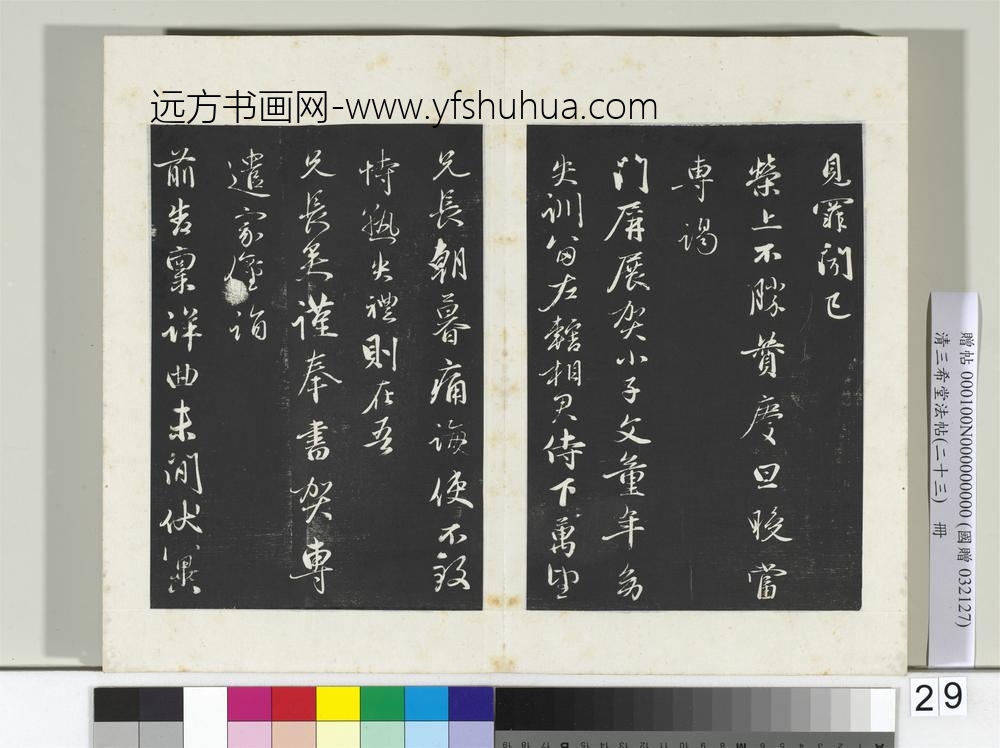 远方书画网-www.yfshuhua.com
見罪閑已
榮上不勝贊慶旦晚當
専謁
門屏展賀小子文童年多
失訓
左轄相君侍下萬望
兄長朝暮痛誨使不致
恃
失禮則在吾
兄長矣謹奉書賀専
遣家僮詣
前告稟詳曲未閒伏冀
贈帖 000100N000000000 (國贈 032127)
清三希堂法帖(二十三) 冊
29